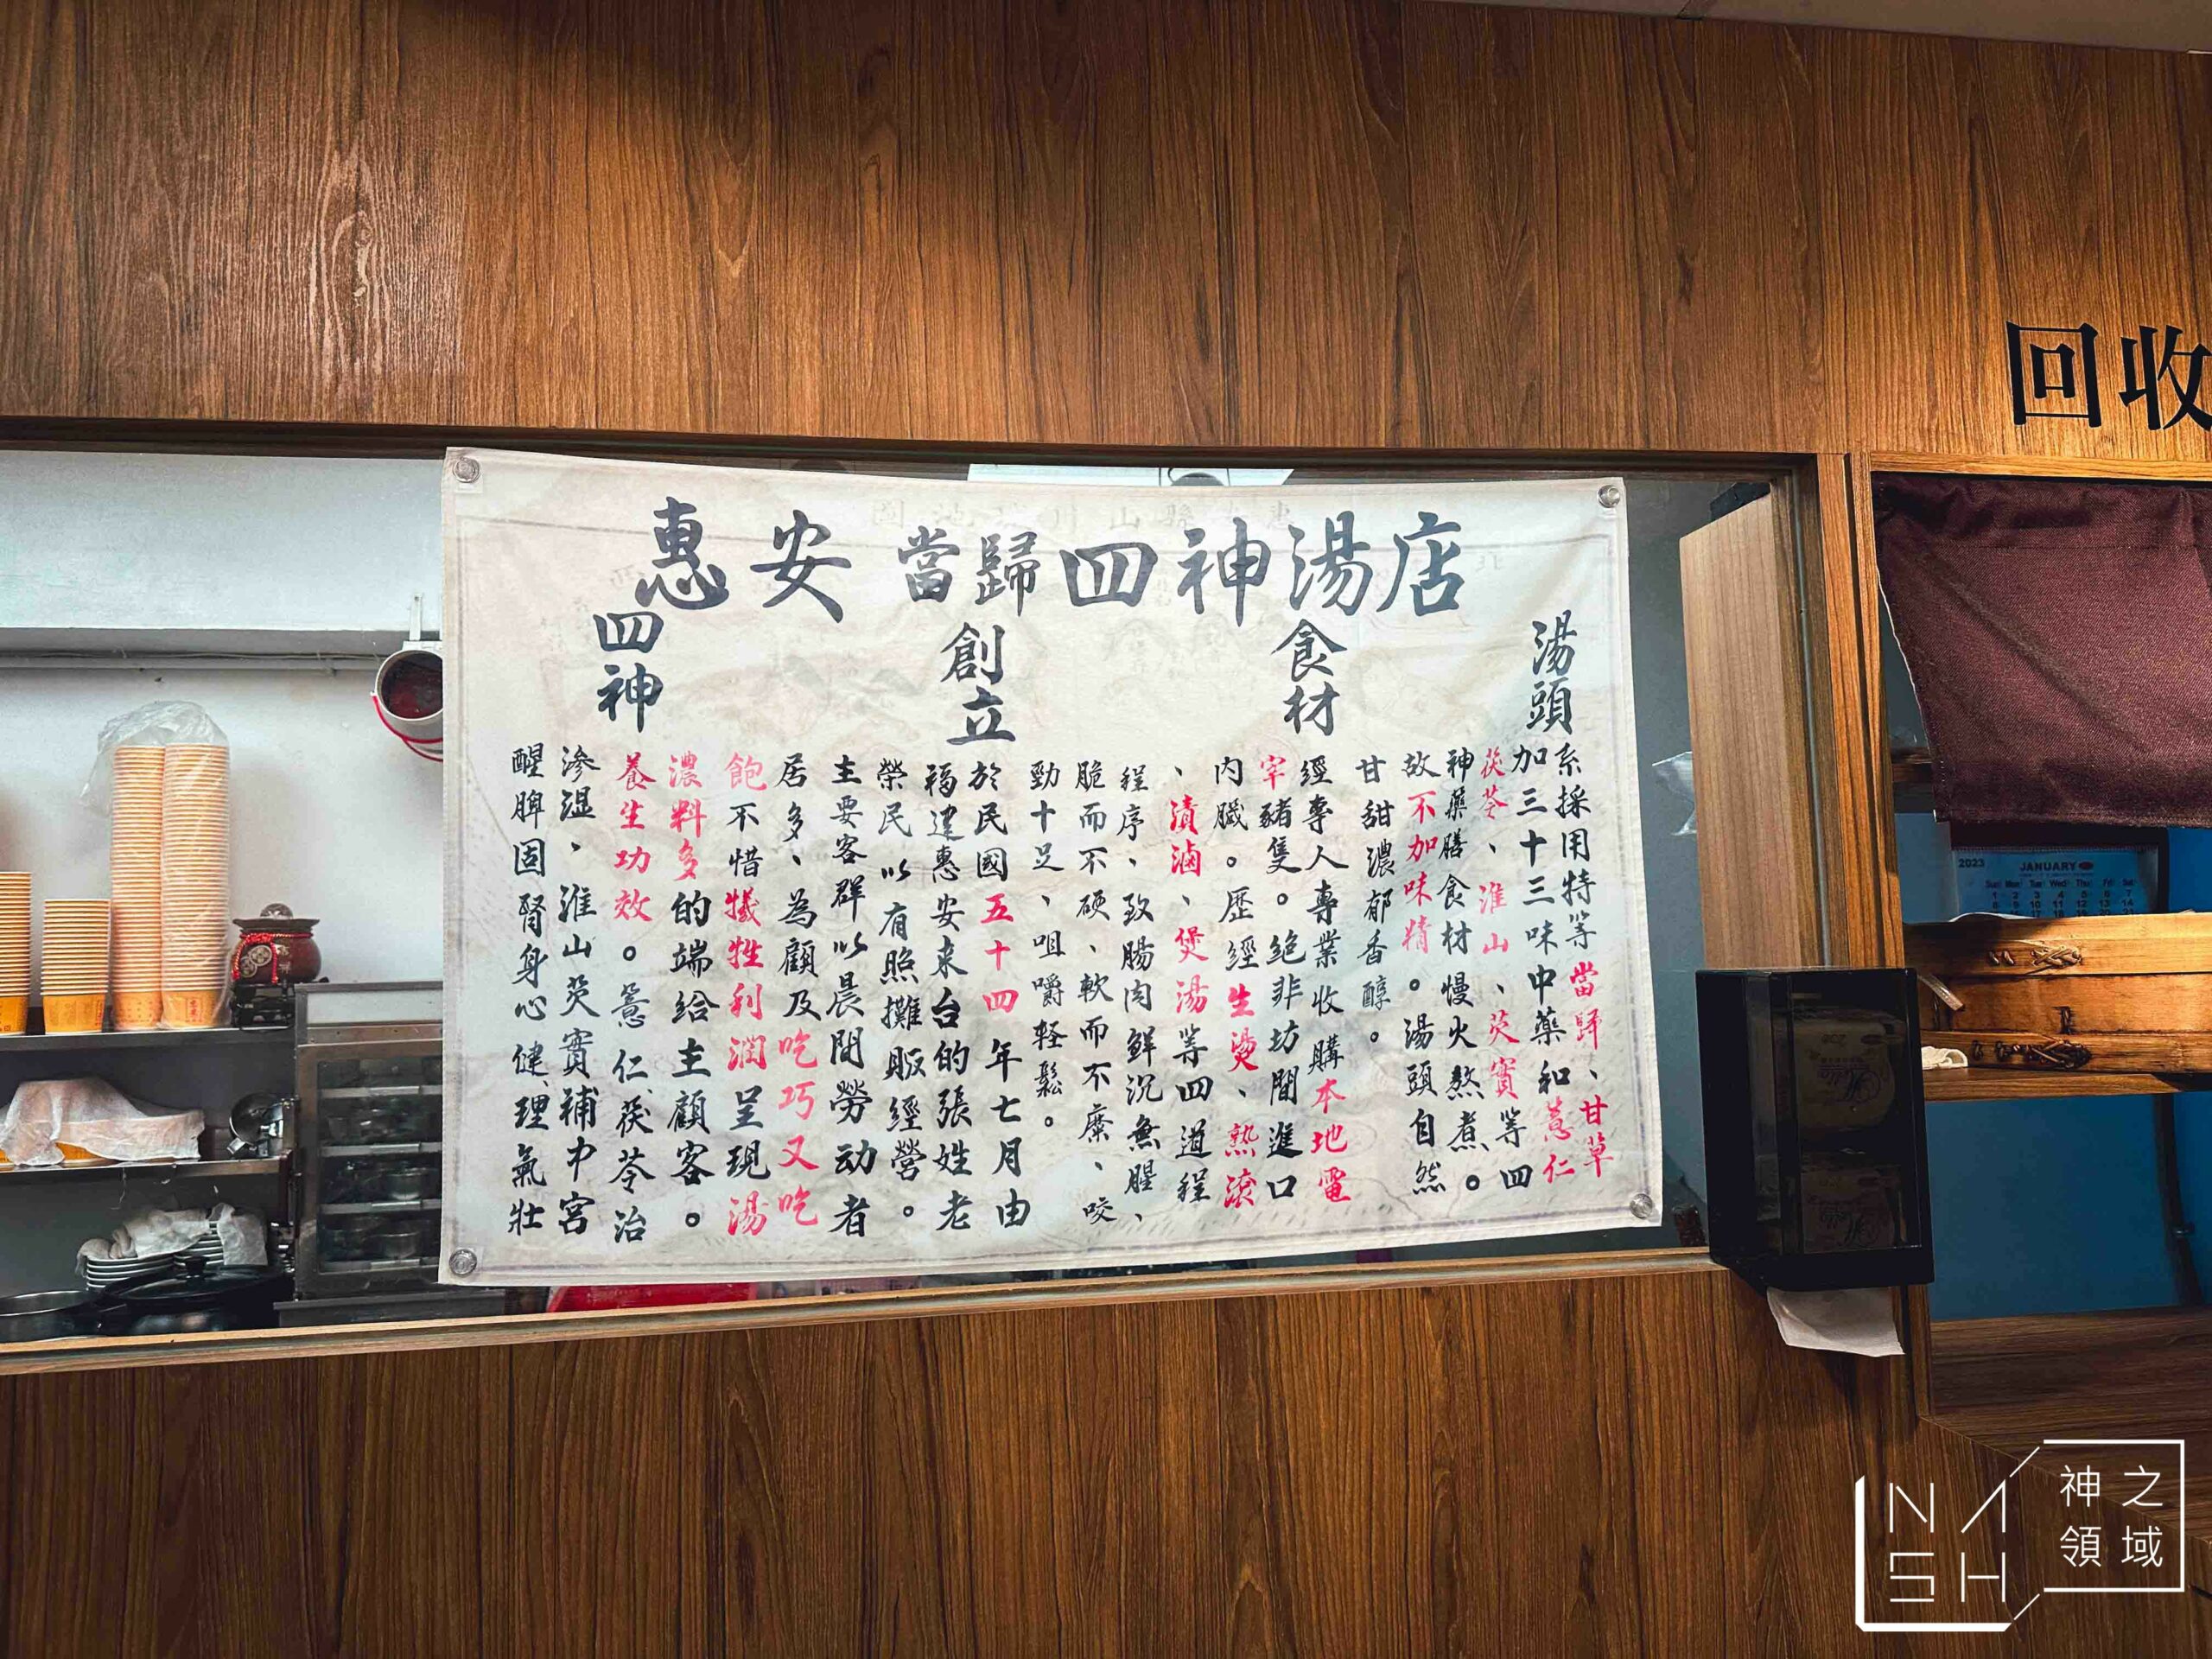 惠安當歸四神湯店
湯頭
系採用特等當歸、甘草
加三十三味中藥和薏仁
茯苓、淮山、芡實等四
神藥膳食材慢火熬煮。
故不加味精。湯頭自然
甘甜濃郁香醇。
食材
經專人專業收購本地電
宰豬隻。絕非坊間進口
內臟。歷經生燙、熱滾
、漬滷、煲湯等四道程
程序、致腸肉鮮沉無腥、
脆而不硬、軟而不糜、咬
勁十足、咀嚼輕鬆。
創立
於民國五十四年七月由
福建惠安來台的張姓老
榮民以有照攤販經營。
主要客群以晨間勞动者
居多、為顧及吃巧又吃
飽不惜犧牲利潤呈現湯
濃料多的端給主顧客。
四神
養生功效。薏仁、茯苓治
滲溼、淮山芡實補中宮
醒脾固腎身心健、理氣壯
回收
2023 JANUARY
Sun Mon Tue Wed Thu Fri Sat
NASH
神之
領域